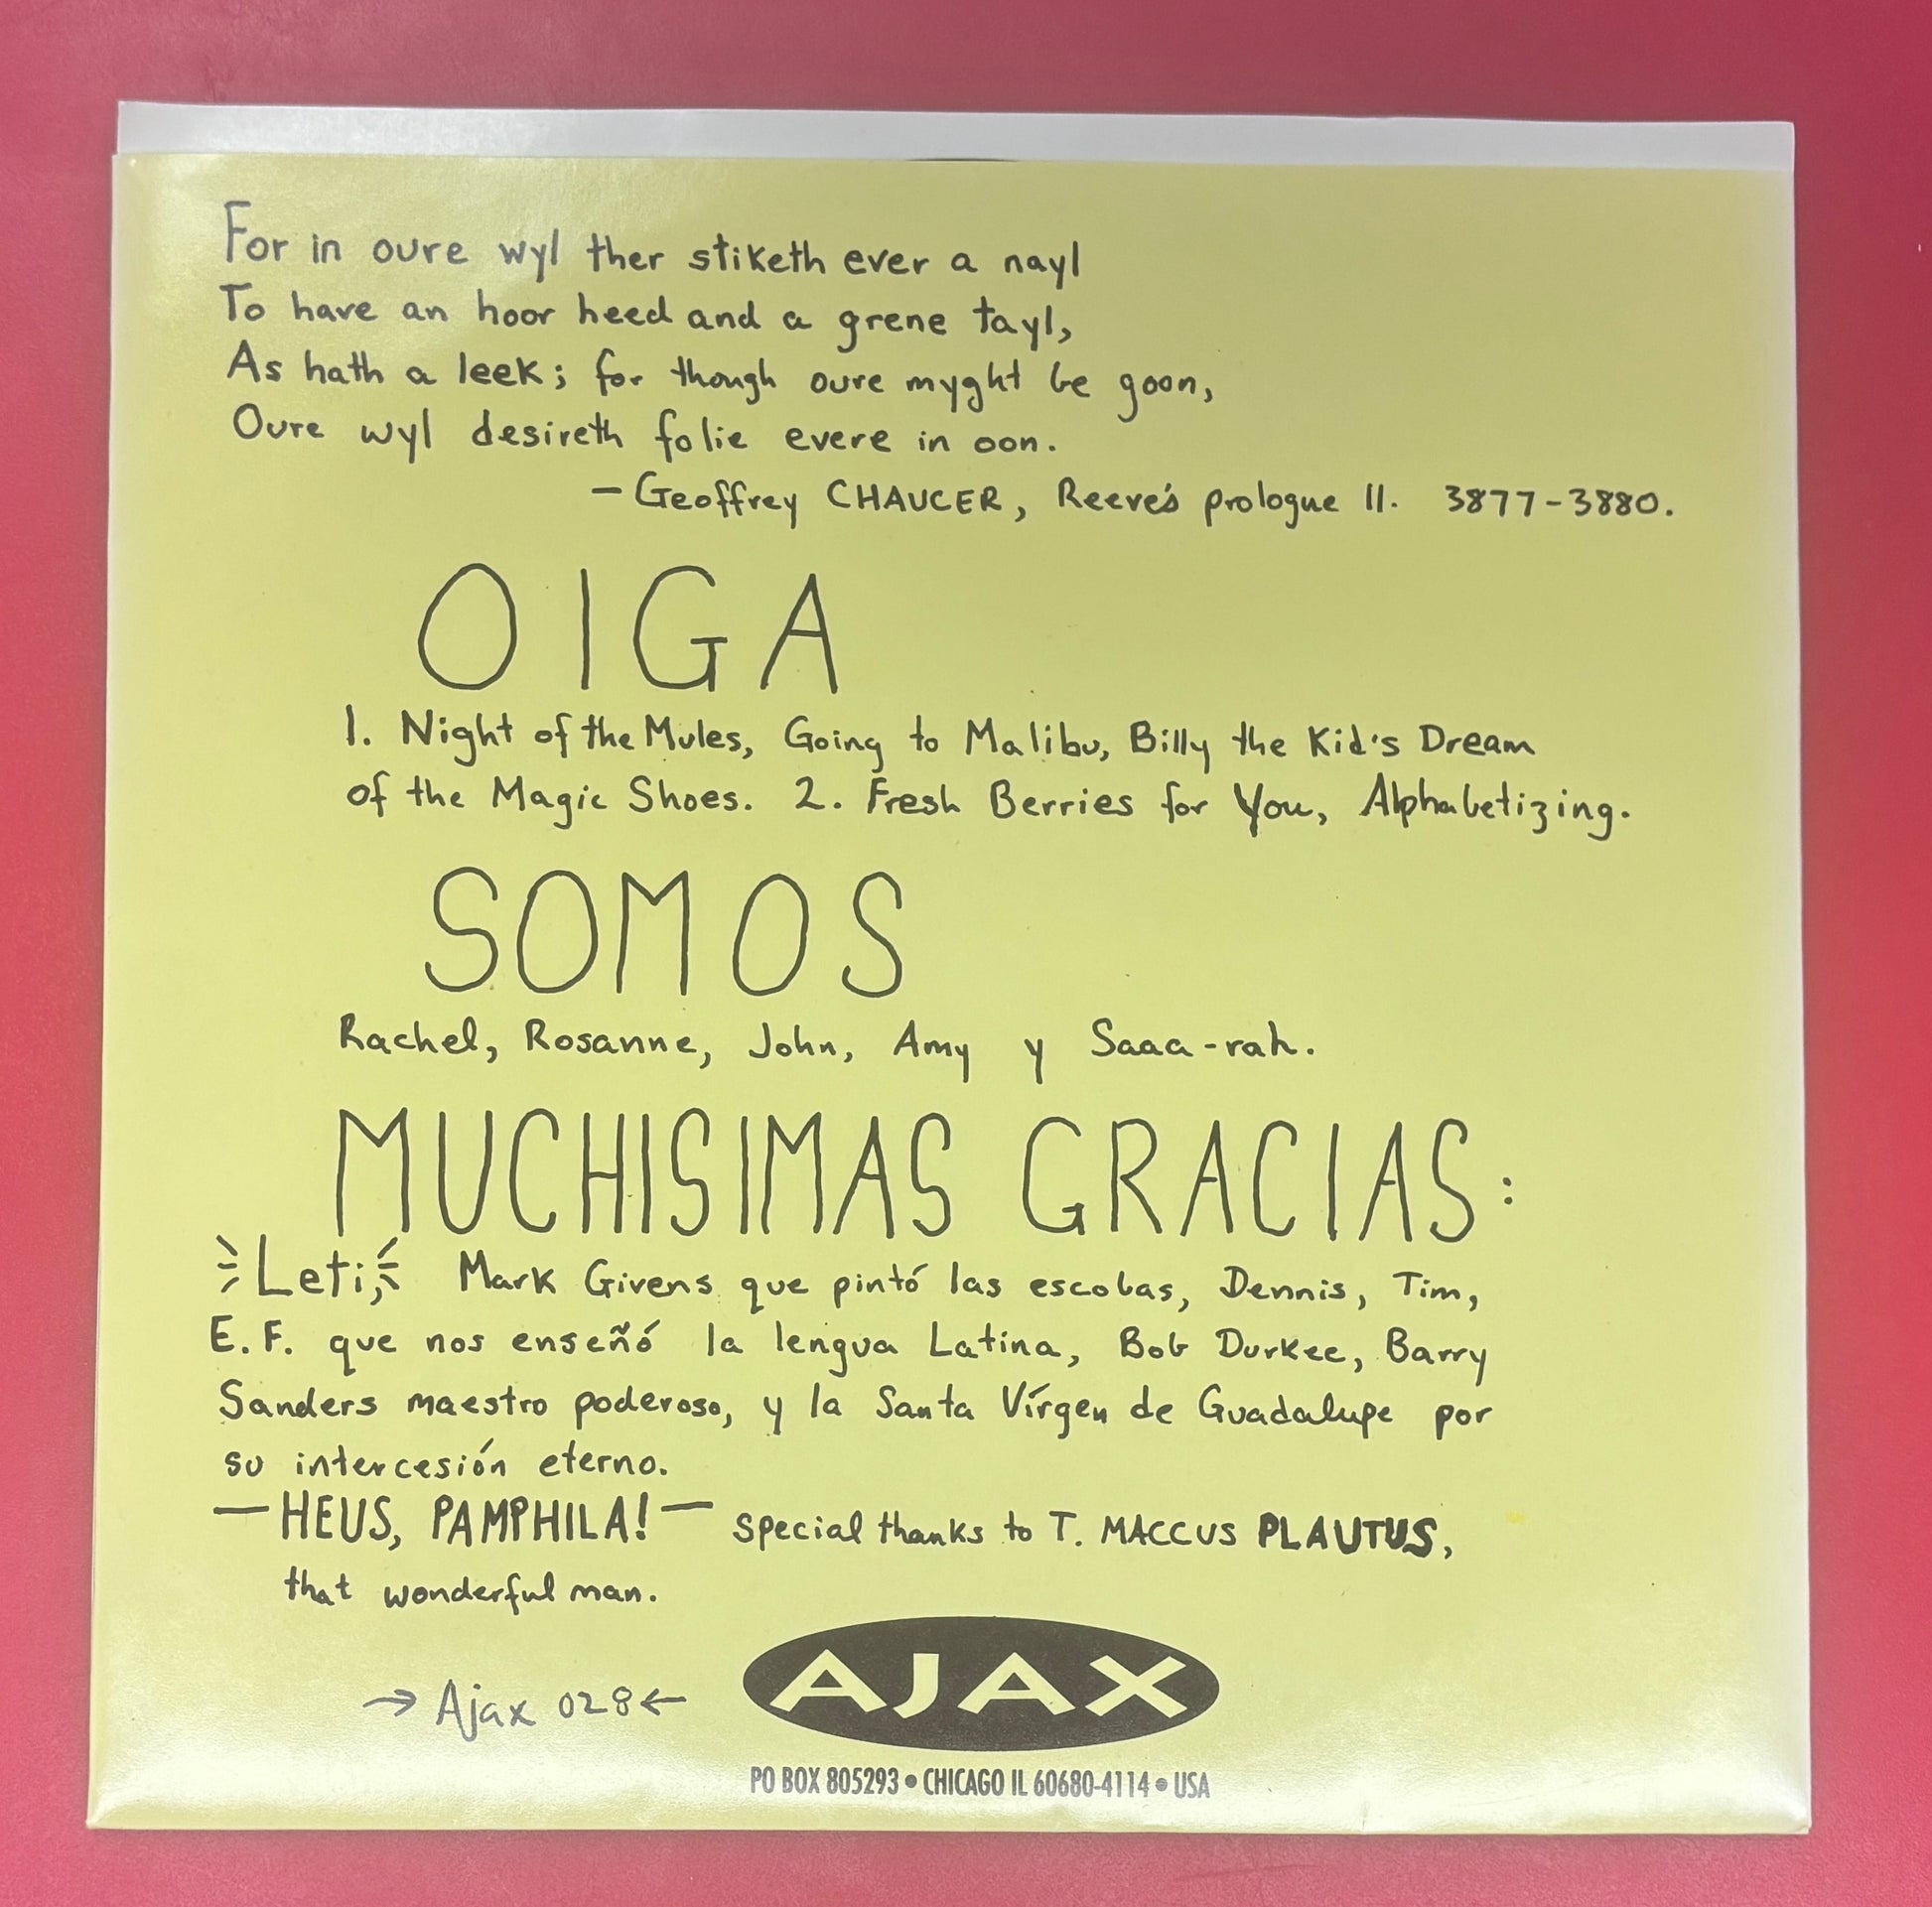 For in oure wyl ther stiketh ever a nayl
To have an hoor heed and a grene tayl,
As hath a leek; for though oure myght be goon,
Oure wyl desireth folie evere in oon.
— Geoffrey CHAUCER, Reeve's prologue ll. 3877-3880.
OIGA
1. Night of the Mules, Going to Malibu, Billy the Kid's Dream
of the Magic Shoes. 2. Fresh Berries for You, Alphabetizing.
SOMOS
Rachel, Rosanne, John, Amy y Saaa-rah.
MUCHISIMAS GRACIAS:
Leti, Mark Givens que pintó las escobas, Dennis, Tim,
E.F. que nos enseñó la lengua Latina, Bob Durkee, Barry
Sanders maestro poderoso, y la Santa Vírgen de Guadalupe por
su intercesión eterno.
— HEUS, PAMPHILA! — special thanks to T. MACCUS PLAUTUS,
that wonderful man.
→ Ajax 028 ← AJAX
PO BOX 805293 • CHICAGO IL 60680-4114 • USA